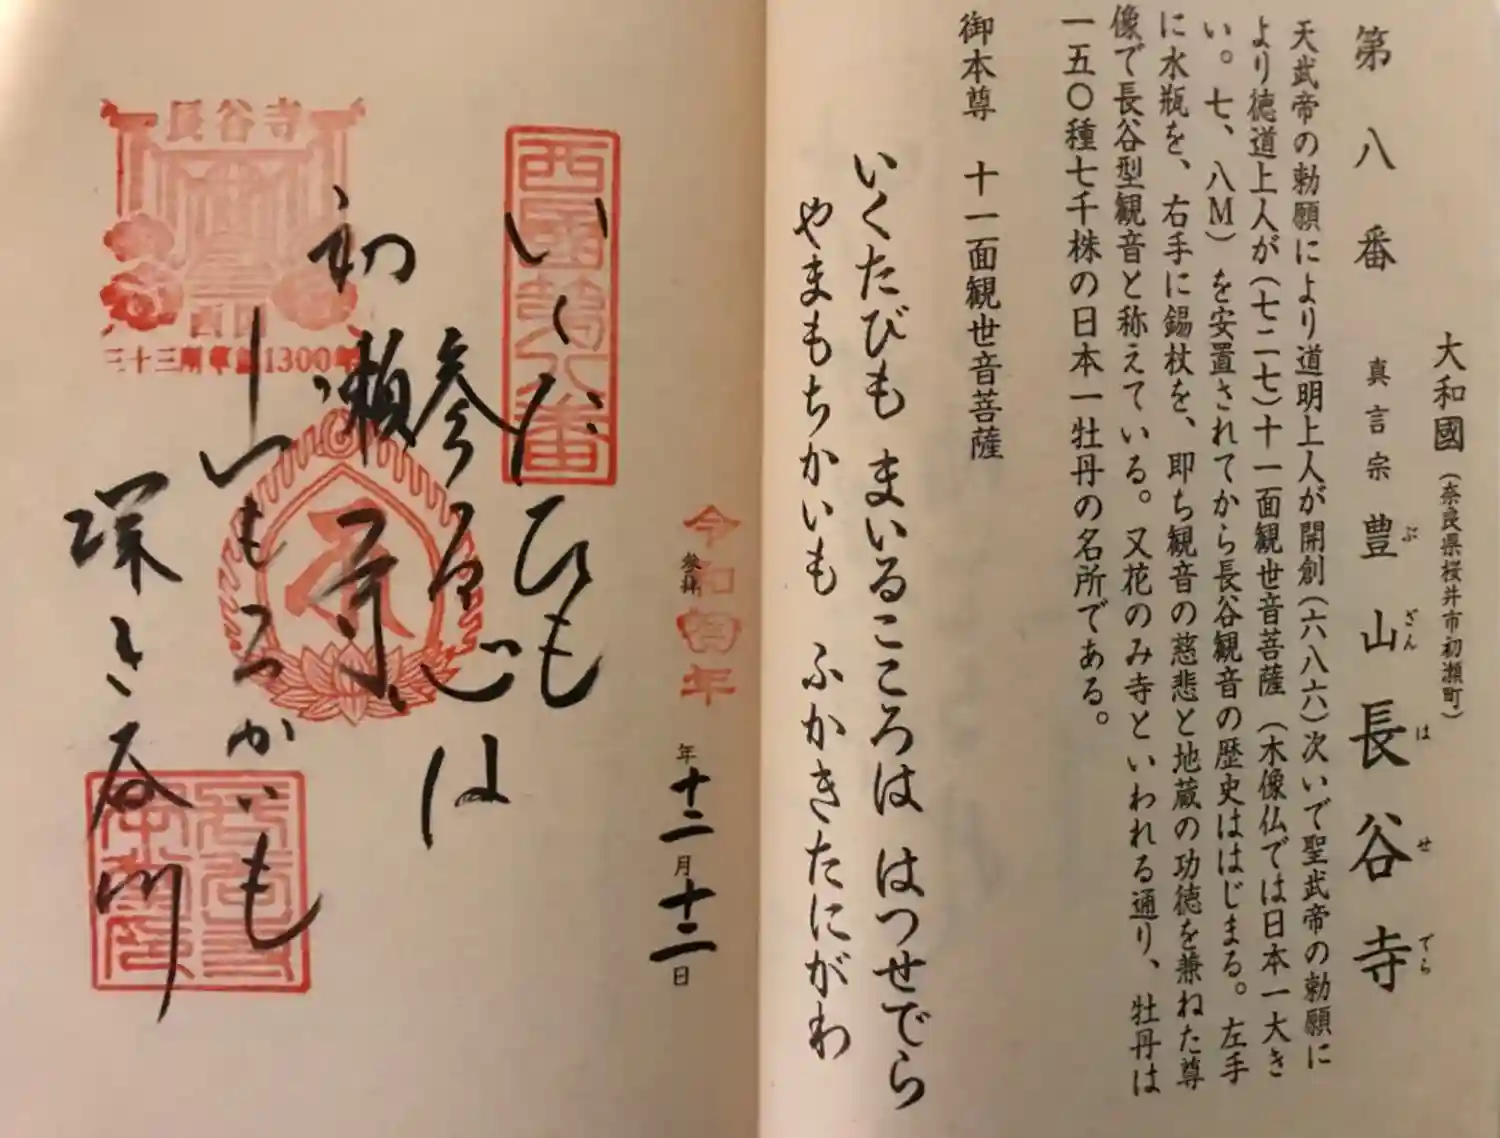 大和國（奈良県桜井市初瀬町）
第八番 真言宗 豊山長谷寺
ぶざん はせでら
天武帝の勅願により道明上人が開創(六八六)次いで聖武帝の勅願に
より徳道上人が(七二七)十一面観世音菩薩（木像仏では日本一大き
い。七、八M）を安置されてから長谷観音の歴史ははじまる。左手
に水瓶を、右手に錫杖を、即ち観音の慈悲と地蔵の功徳を兼ねた尊
像で長谷型観音と称えている。又花のみ寺といわれる通り、牡丹は
一五〇種七千株の日本一牡丹の名所である。
御本尊 十一面観世音菩薩
いくたびも まいるこころは はつせでら
やまもちかいも ふかきたにがわ
令和 年
参拝 年十二月十二日
西國第八番
いくたひも
参る心は
初瀬寺
山もちかいも
深き谷川
長谷寺
西国
三十三所草創1300年